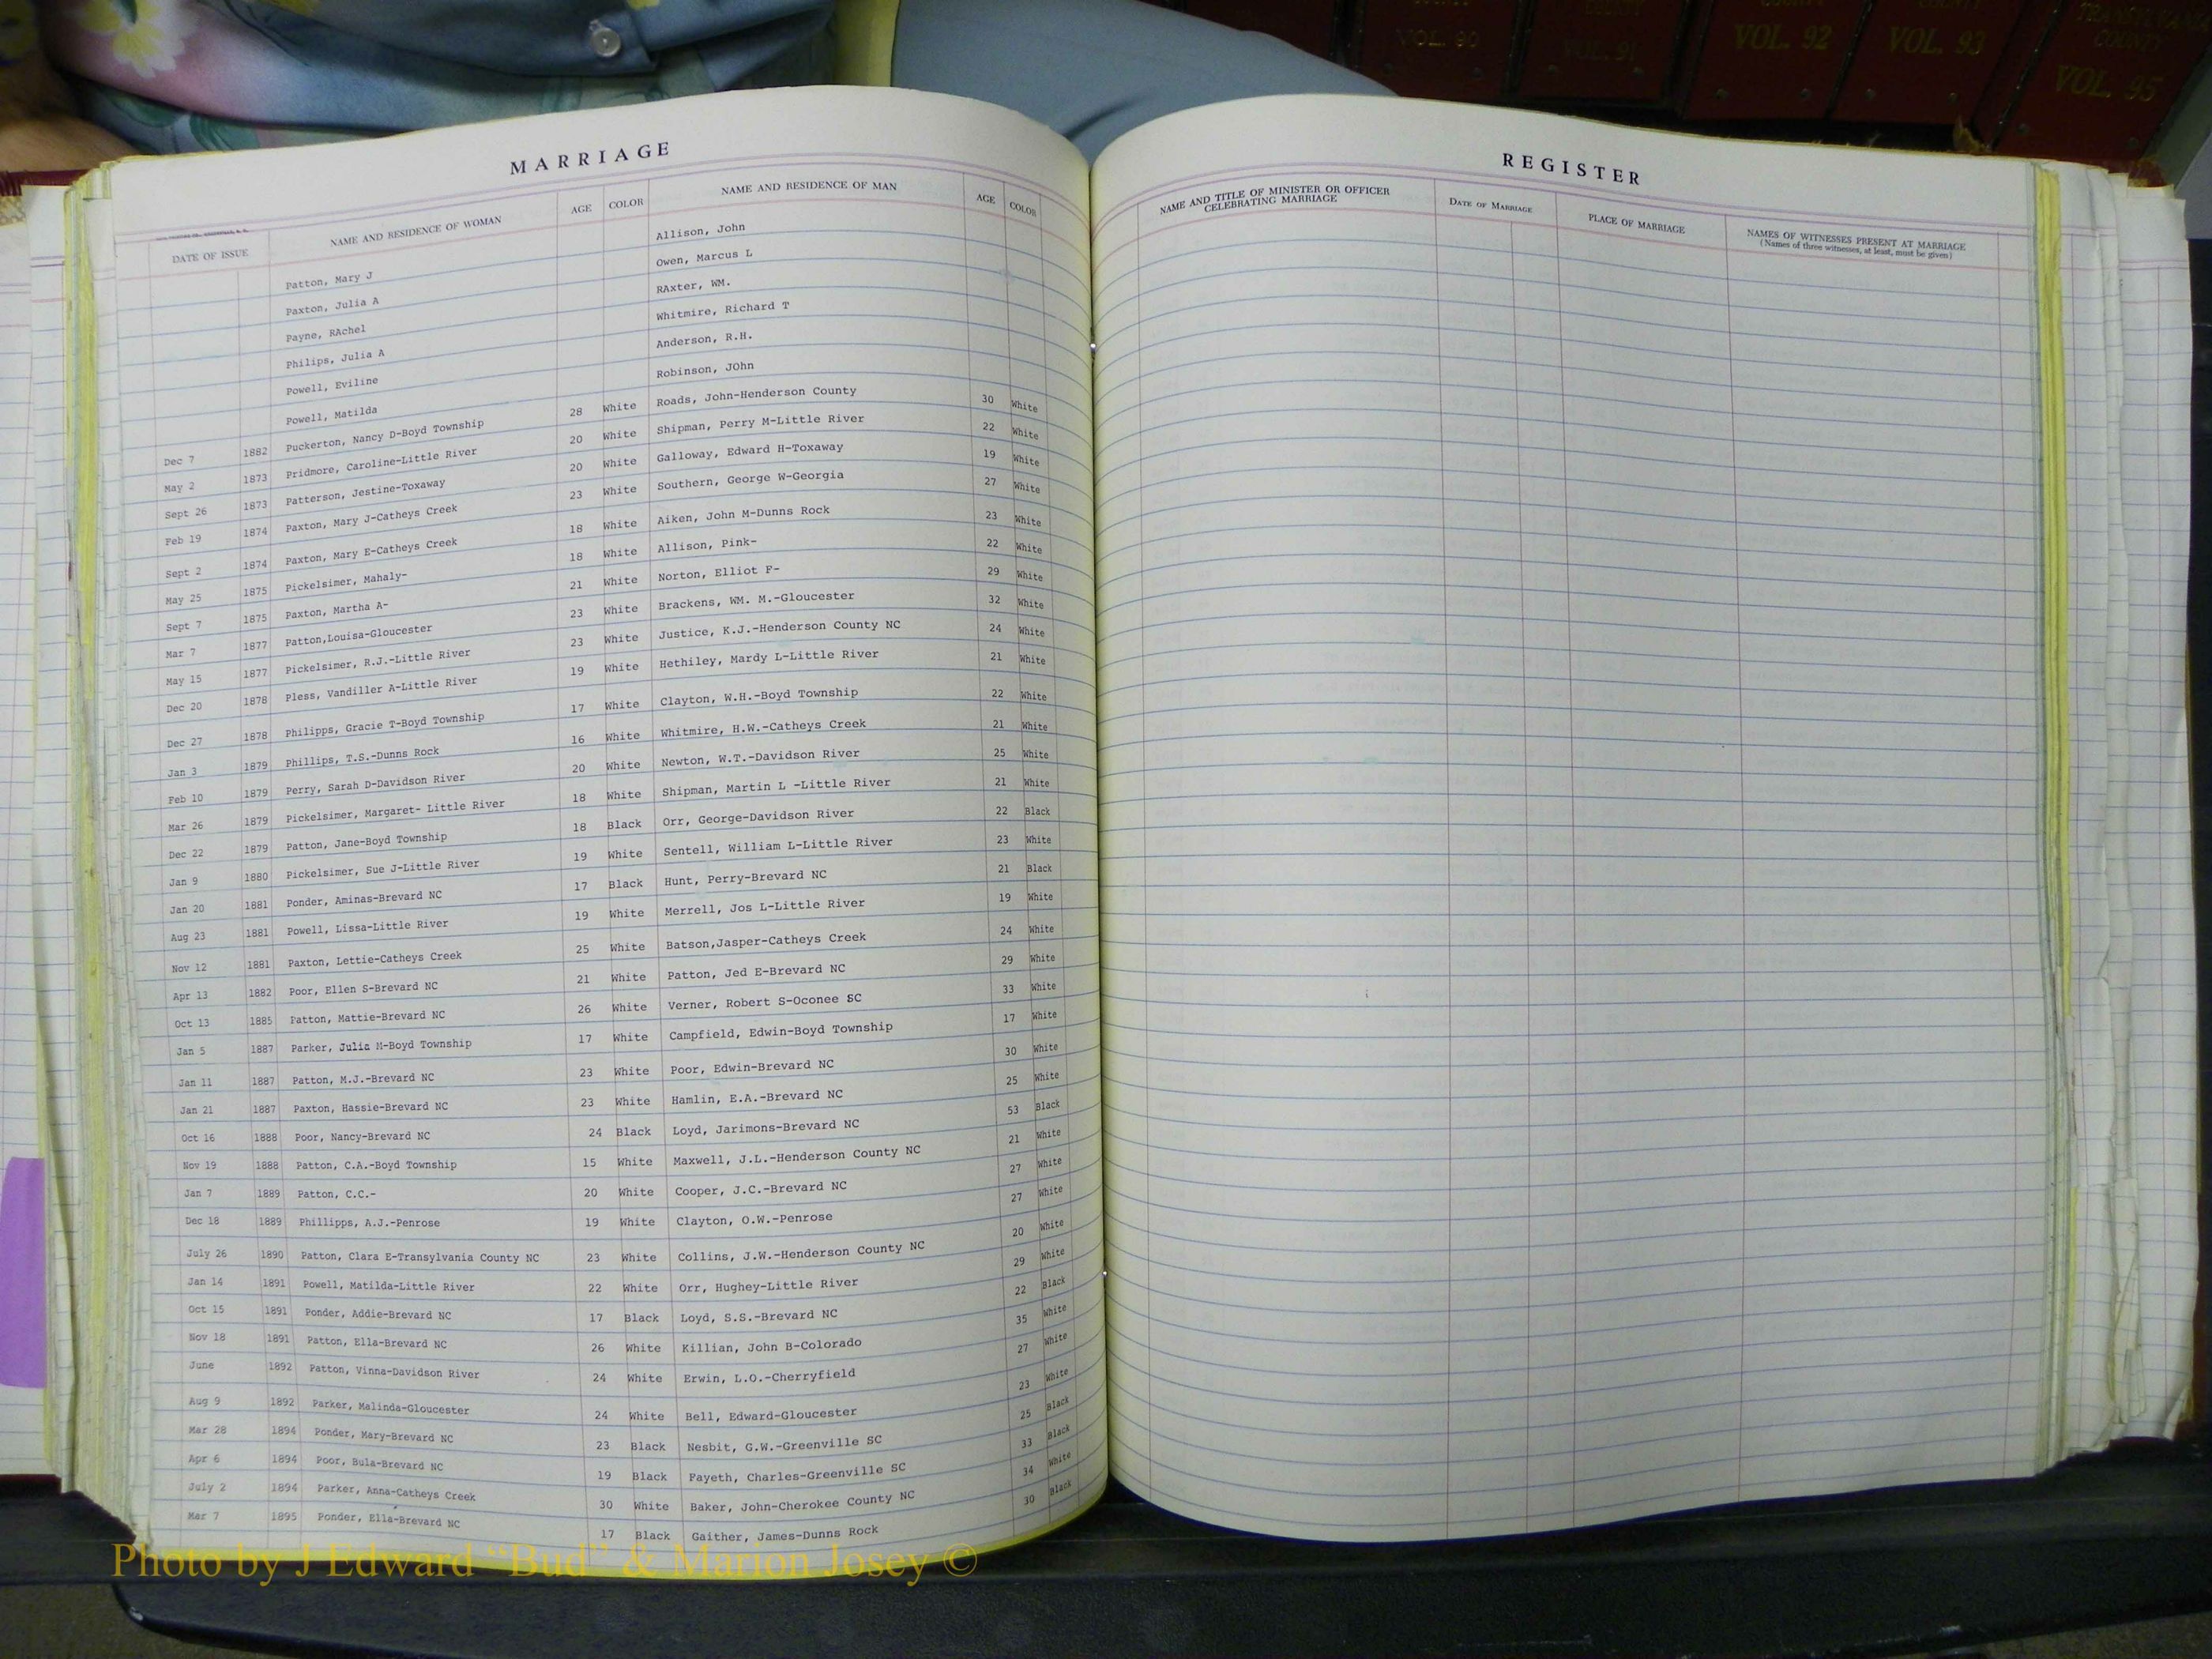 VOL. 90 VOL. 91 COUNTY VOL. 92 COUNTY VOL. 93 TRANSYLVANIA COUNTY VOL. 95
MARRIAGE
DATE OF ISSUE NAME AND RESIDENCE OF WOMAN AGE COLOR NAME AND RESIDENCE OF MAN AGE COLOR
Patton, Mary J Allison, John
Paxton, Julia A Owen, Marcus L
Payne, RAchel RAxter, WM.
Philips, Julia A Whitmire, Richard T
Powell, Eviline Anderson, R.H.
Powell, Matilda Robinson, JOhn
Dec 7 1882 Puckerton, Nancy D-Boyd Township 28 White Roads, John-Henderson County 30 White
May 2 1873 Pridmore, Caroline-Little River 20 White Shipman, Perry M-Little River 22 White
Sept 26 1873 Patterson, Jestine-Toxaway 20 White Galloway, Edward H-Toxaway 19 White
Feb 19 1874 Paxton, Mary J-Catheys Creek 23 White Southern, George W-Georgia 27 White
Sept 2 1874 Paxton, Mary E-Catheys Creek 18 White Aiken, John M-Dunns Rock 23 White
May 25 1875 Pickelsimer, Mahaly- 18 White Allison, Pink- 22 White
Sept 7 1875 Paxton, Martha A- 21 White Norton, Elliot F- 29 White
Mar 7 1877 Patton,Louisa-Gloucester 23 White Brackens, WM. M.-Gloucester 32 White
May 15 1877 Pickelsimer, R.J.-Little River 23 White Justice, K.J.-Henderson County NC 24 White
Dec 20 1878 Pless, Vandiller A-Little River 19 White Hethiley, Mardy L-Little River 21 White
Dec 27 1878 Philipps, Gracie T-Boyd Township 17 White Clayton, W.H.-Boyd Township 22 White
Jan 3 1879 Phillips, T.S.-Dunns Rock 16 White Whitmire, H.W.-Catheys Creek 21 White
Feb 10 1879 Perry, Sarah D-Davidson River 20 White Newton, W.T.-Davidson River 25 White
Mar 26 1879 Pickelsimer, Margaret- Little River 18 White Shipman, Martin L -Little River 21 White
Dec 22 1879 Patton, Jane-Boyd Township 18 Black Orr, George-Davidson River 22 Black
Jan 9 1880 Pickelsimer, Sue J-Little River 19 White Sentell, William L-Little River 23 White
Jan 20 1881 Ponder, Aminas-Brevard NC 17 Black Hunt, Perry-Brevard NC 21 Black
Aug 23 1881 Powell, Lissa-Little River 19 White Merrell, Jos L-Little River 19 White
Nov 12 1881 Paxton, Lettie-Catheys Creek 25 White Batson,Jasper-Catheys Creek 24 White
Apr 13 1882 Poor, Ellen S-Brevard NC 21 White Patton, Jed E-Brevard NC 29 White
Oct 13 1885 Patton, Mattie-Brevard NC 26 White Verner, Robert S-Oconee SC 33 White
Jan 5 1887 Parker, Julia M-Boyd Township 17 White Campfield, Edwin-Boyd Township 17 White
Jan 11 1887 Patton, M.J.-Brevard NC 23 White Poor, Edwin-Brevard NC 30 White
Jan 21 1887 Paxton, Hassie-Brevard NC 23 White Hamlin, E.A.-Brevard NC 25 White
Oct 16 1888 Poor, Nancy-Brevard NC 24 Black Loyd, Jarimons-Brevard NC 53 Black
Nov 19 1888 Patton, C.A.-Boyd Township 15 White Maxwell, J.L.-Henderson County NC 21 White
Jan 7 1889 Patton, C.C.- 20 White Cooper, J.C.-Brevard NC 27 White
Dec 18 1889 Phillipps, A.J.-Penrose 19 White Clayton, O.W.-Penrose 27 White
July 26 1890 Patton, Clara E-Transylvania County NC 23 White Collins, J.W.-Henderson County NC 20 White
Jan 14 1891 Powell, Matilda-Little River 22 White Orr, Hughey-Little River 29 White
Oct 15 1891 Ponder, Addie-Brevard NC 17 Black Loyd, S.S.-Brevard NC 22 Black
Nov 18 1891 Patton, Ella-Brevard NC 26 White Killian, John B-Colorado 35 White
June 1892 Patton, Vinna-Davidson River 24 White Erwin, L.O.-Cherryfield 27 White
Aug 9 1892 Parker, Malinda-Gloucester 24 White Bell, Edward-Gloucester 23 White
Mar 28 1894 Ponder, Mary-Brevard NC 23 Black Nesbit, G.W.-Greenville SC 25 Black
Apr 6 1894 Poor, Bula-Brevard NC 19 Black Fayeth, Charles-Greenville SC 33 Black
July 2 1894 Parker, Anna-Catheys Creek 30 White Baker, John-Cherokee County NC 34 White
Mar 7 1895 Ponder, Ella-Brevard NC 17 Black Gaither, James-Dunns Rock 30 Black
REGISTER
NAME AND TITLE OF MINISTER OR OFFICER CELEBRATING MARRIAGE DATE OF MARRIAGE PLACE OF MARRIAGE NAMES OF WITNESSES PRESENT AT MARRIAGE
(Names of three witnesses, at least, must be given)
Photo by J Edward "Bud" & Marion Josey ©